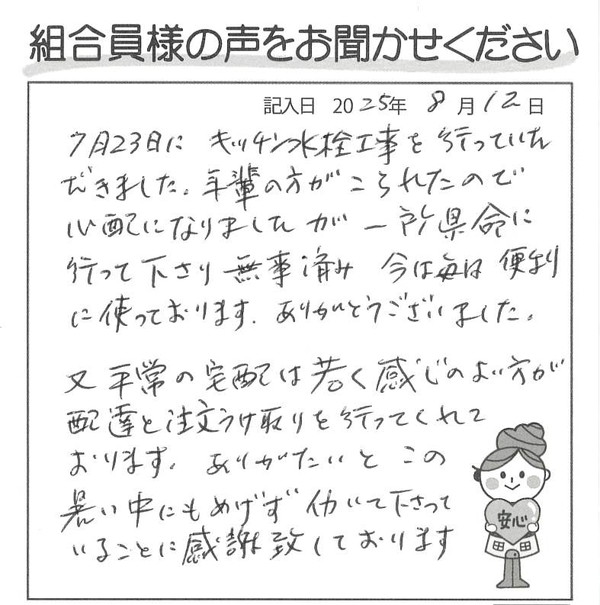 組合員様の声をお聞かせください
記入日 2025年 8月12日
7月23日に キッチン水栓工事を行っていた
だきました。年輩の方がこられたので
心配になりましたが 一所県命に
行って下さり 無事済み 今は毎日 便利
に使っております。ありがとうございました。
又 平常の宅配は若く感じのよい方が
配達と注文うけ取りを行ってくれて
おります。ありがたいと この
暑い中にもめげず 働いて下さって
いることに感謝致しております
安心